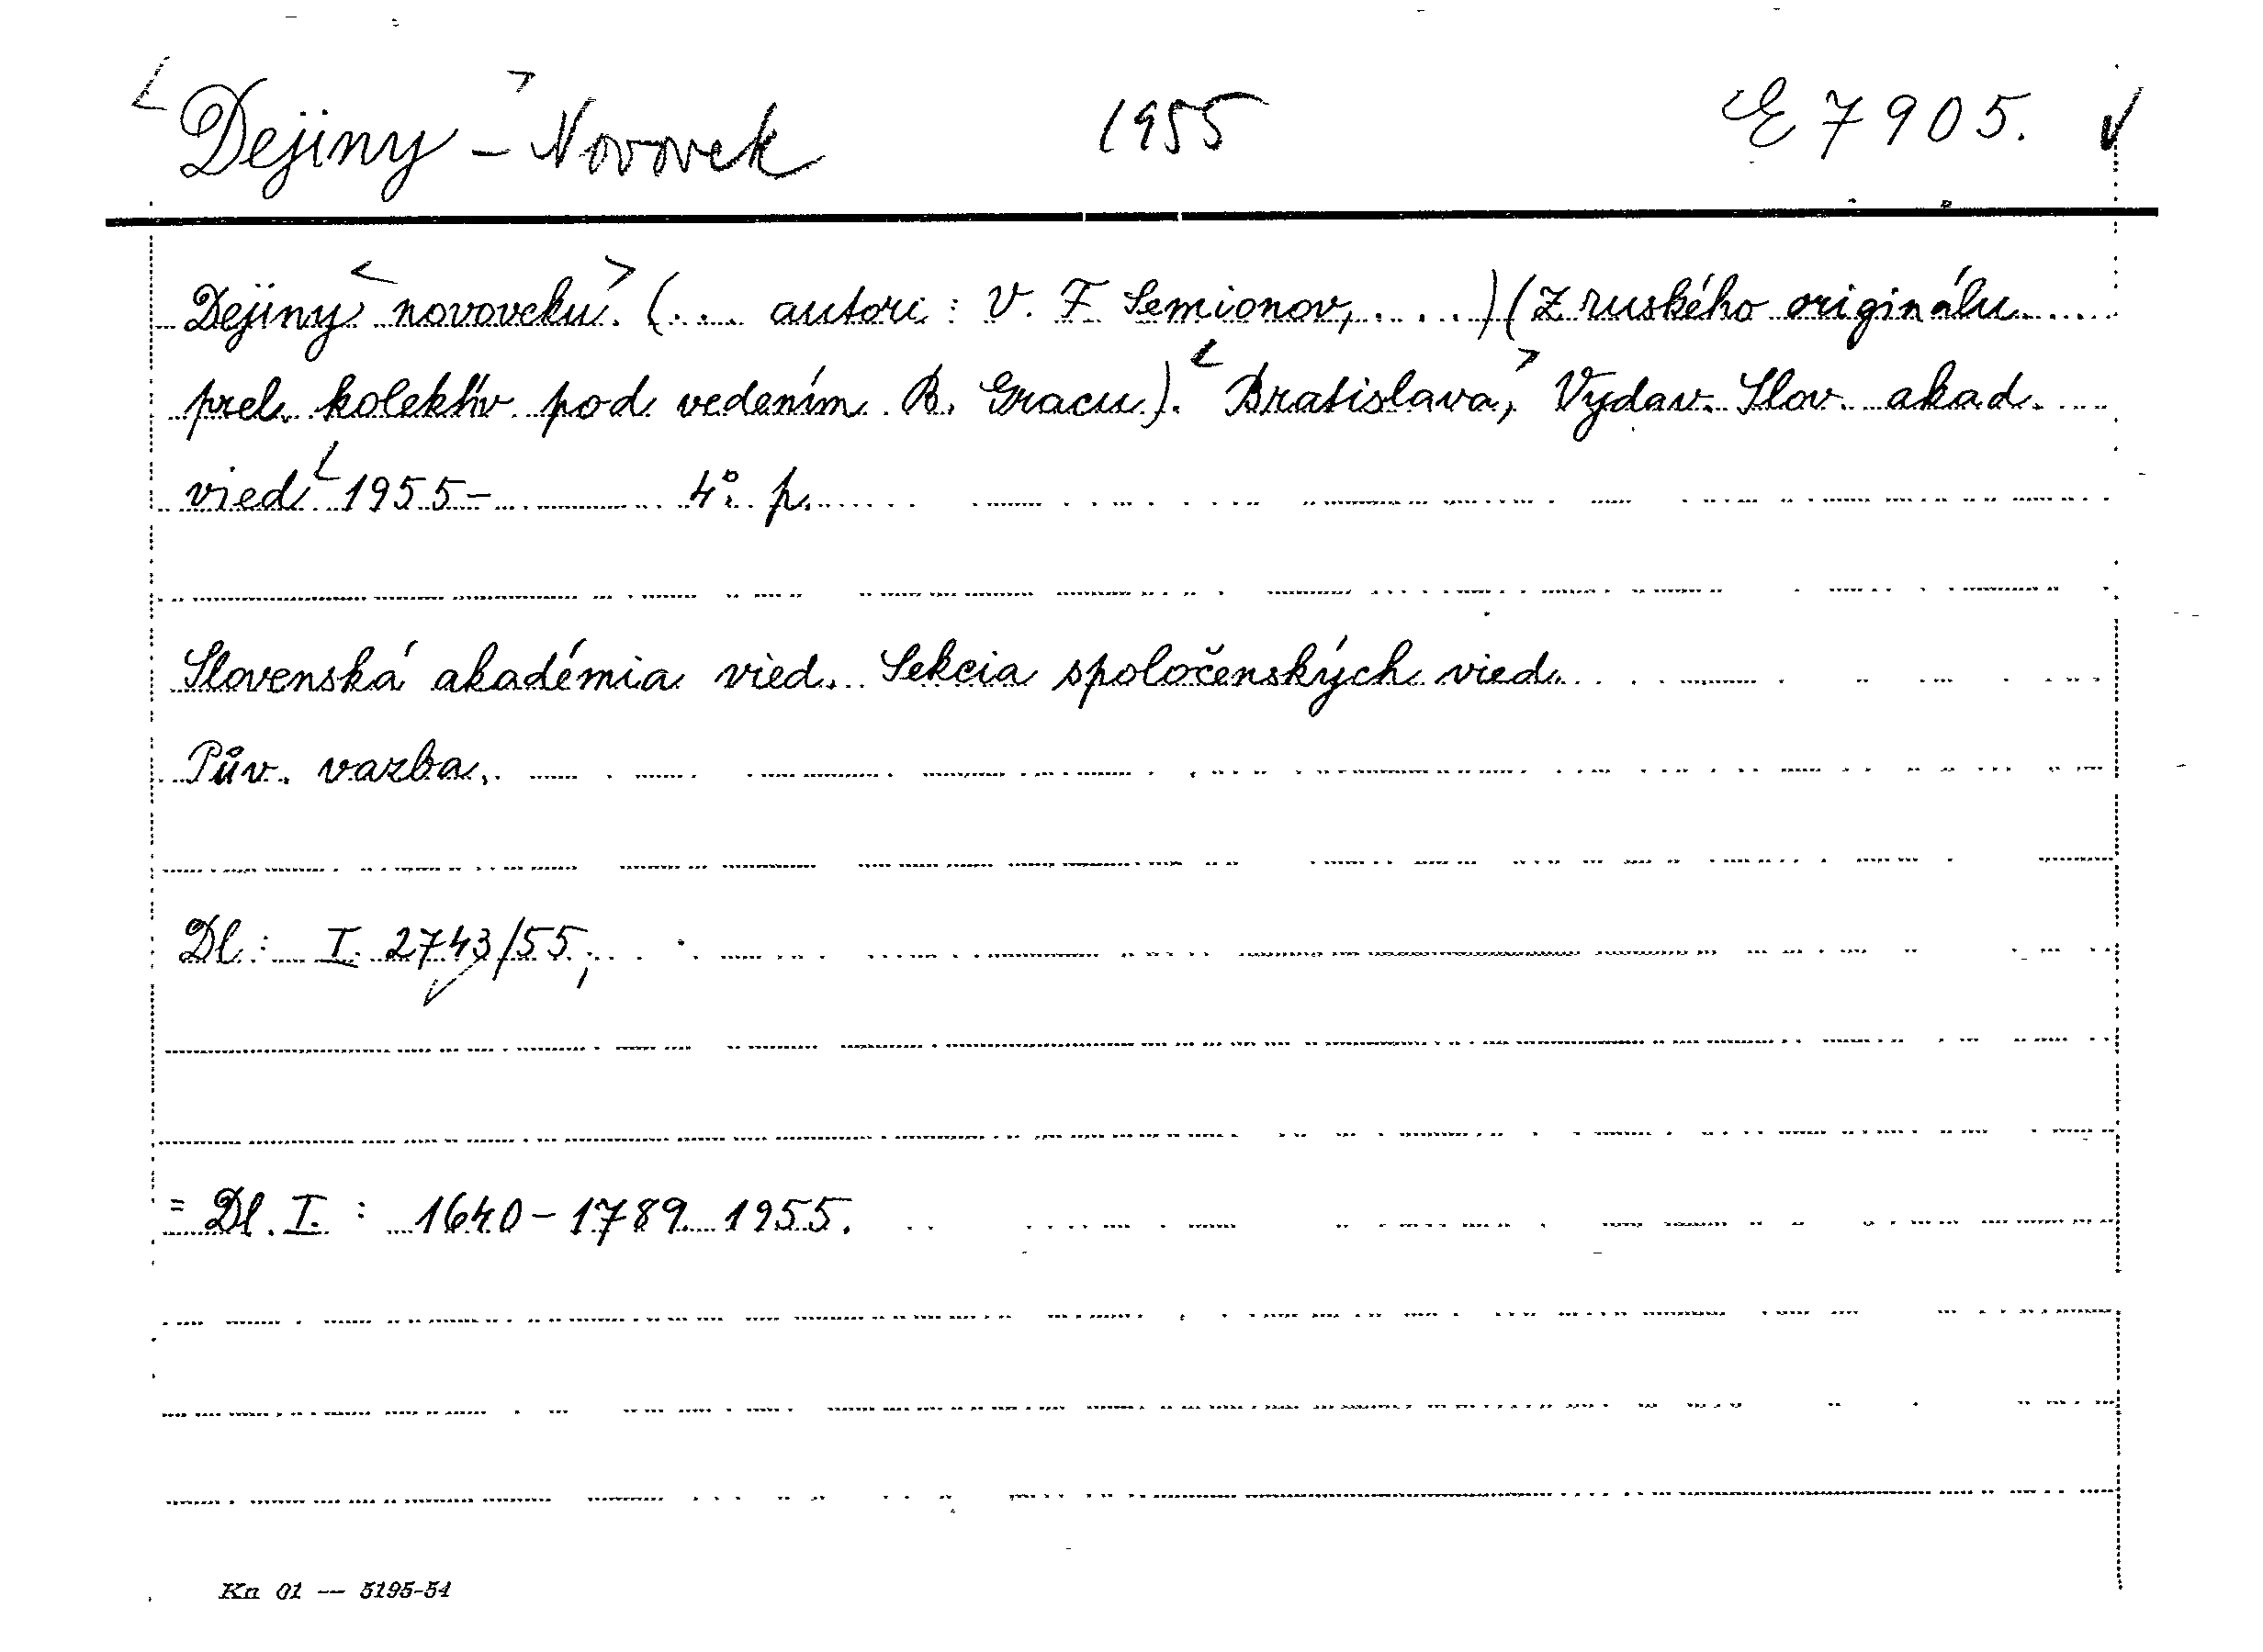 Dejiny - Novovek 1955 E 7905.
Dejiny novoveku. (... autori: V. F. Semionov, ....) (Z ruského originálu
prel. kolektív pod vedením B. Gracu). Bratislava, Vydav. Slov. akad.
vied 1955- 4° p.
Slovenská akadémia vied. Sekcia spoločenských vied.
Pův. vazba.
Dl.: I. 2743/55;
= Dl. I. : 1640-1789. 1955.
Kn 01 — 5195-54